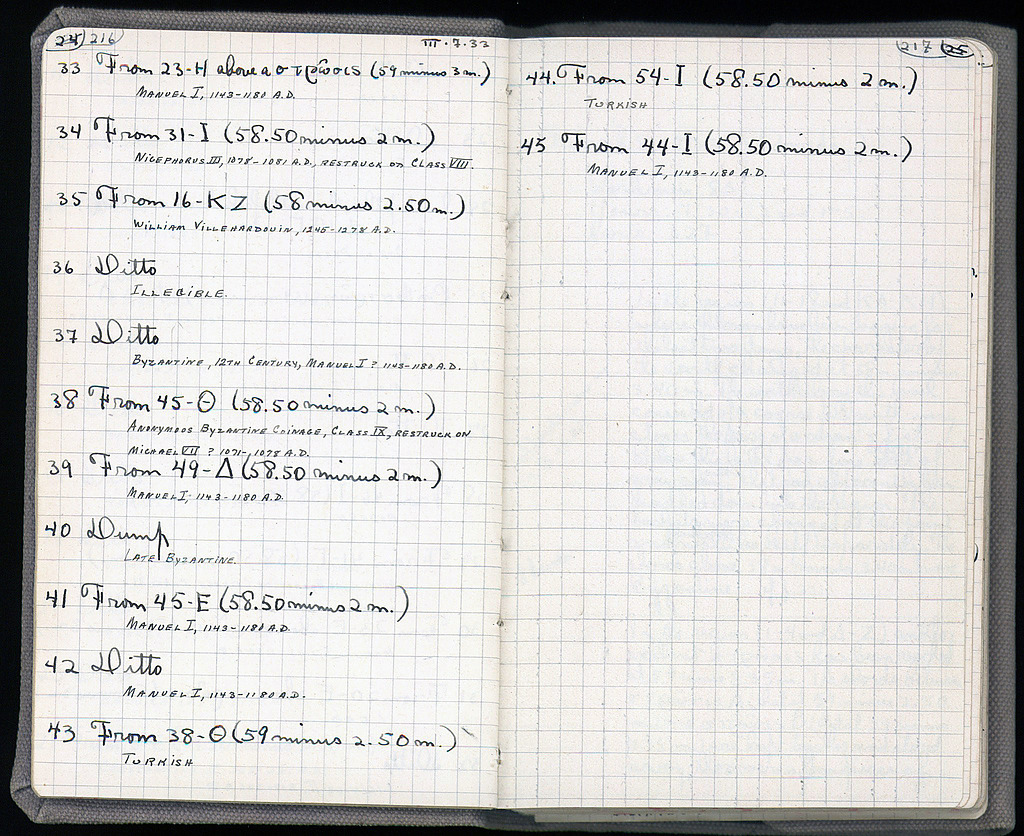 24 216
III.7.33
33 From 23-H above a στρῶσις (59 minus 3m.)
MANUEL I, 1143-1180 A.D.
34 From 31-I (58.50 minus 2 m.)
NICEPHORUS III, 1078-1081 A.D., RESTRUCK ON CLASS VIII.
35 From 16-KZ (58 minus 2.50m.)
WILLIAM VILLEHARDOUIN, 1245-1278 A.D.
36 Ditto
ILLEGIBLE.
37 Ditto
BYZANTINE, 12TH CENTURY, MANUEL I ? 1143-1180 A.D.
38 From 45-Θ (58.50 minus 2 m.)
ANONYMOUS BYZANTINE COINAGE, CLASS IX, RESTRUCK ON
MICHAEL VII ? 1071-1078 A.D.
39 From 49-Δ (58.50 minus 2m.)
MANUEL I, 1143-1180 A.D.
40 Dump
LATE BYZANTINE.
41 From 45-E (58.50 minus 2 m.)
MANUEL I, 1143-1180 A.D.
42 Ditto
MANUEL I, 1143-1180 A.D.
43 From 38-Θ (59 minus 2.50 m.)
TURKISH
217 25
44. From 54-I (58.50 minus 2 m.)
TURKISH
45 From 44-I (58.50 minus 2m.)
MANUEL I, 1143-1180 A.D.